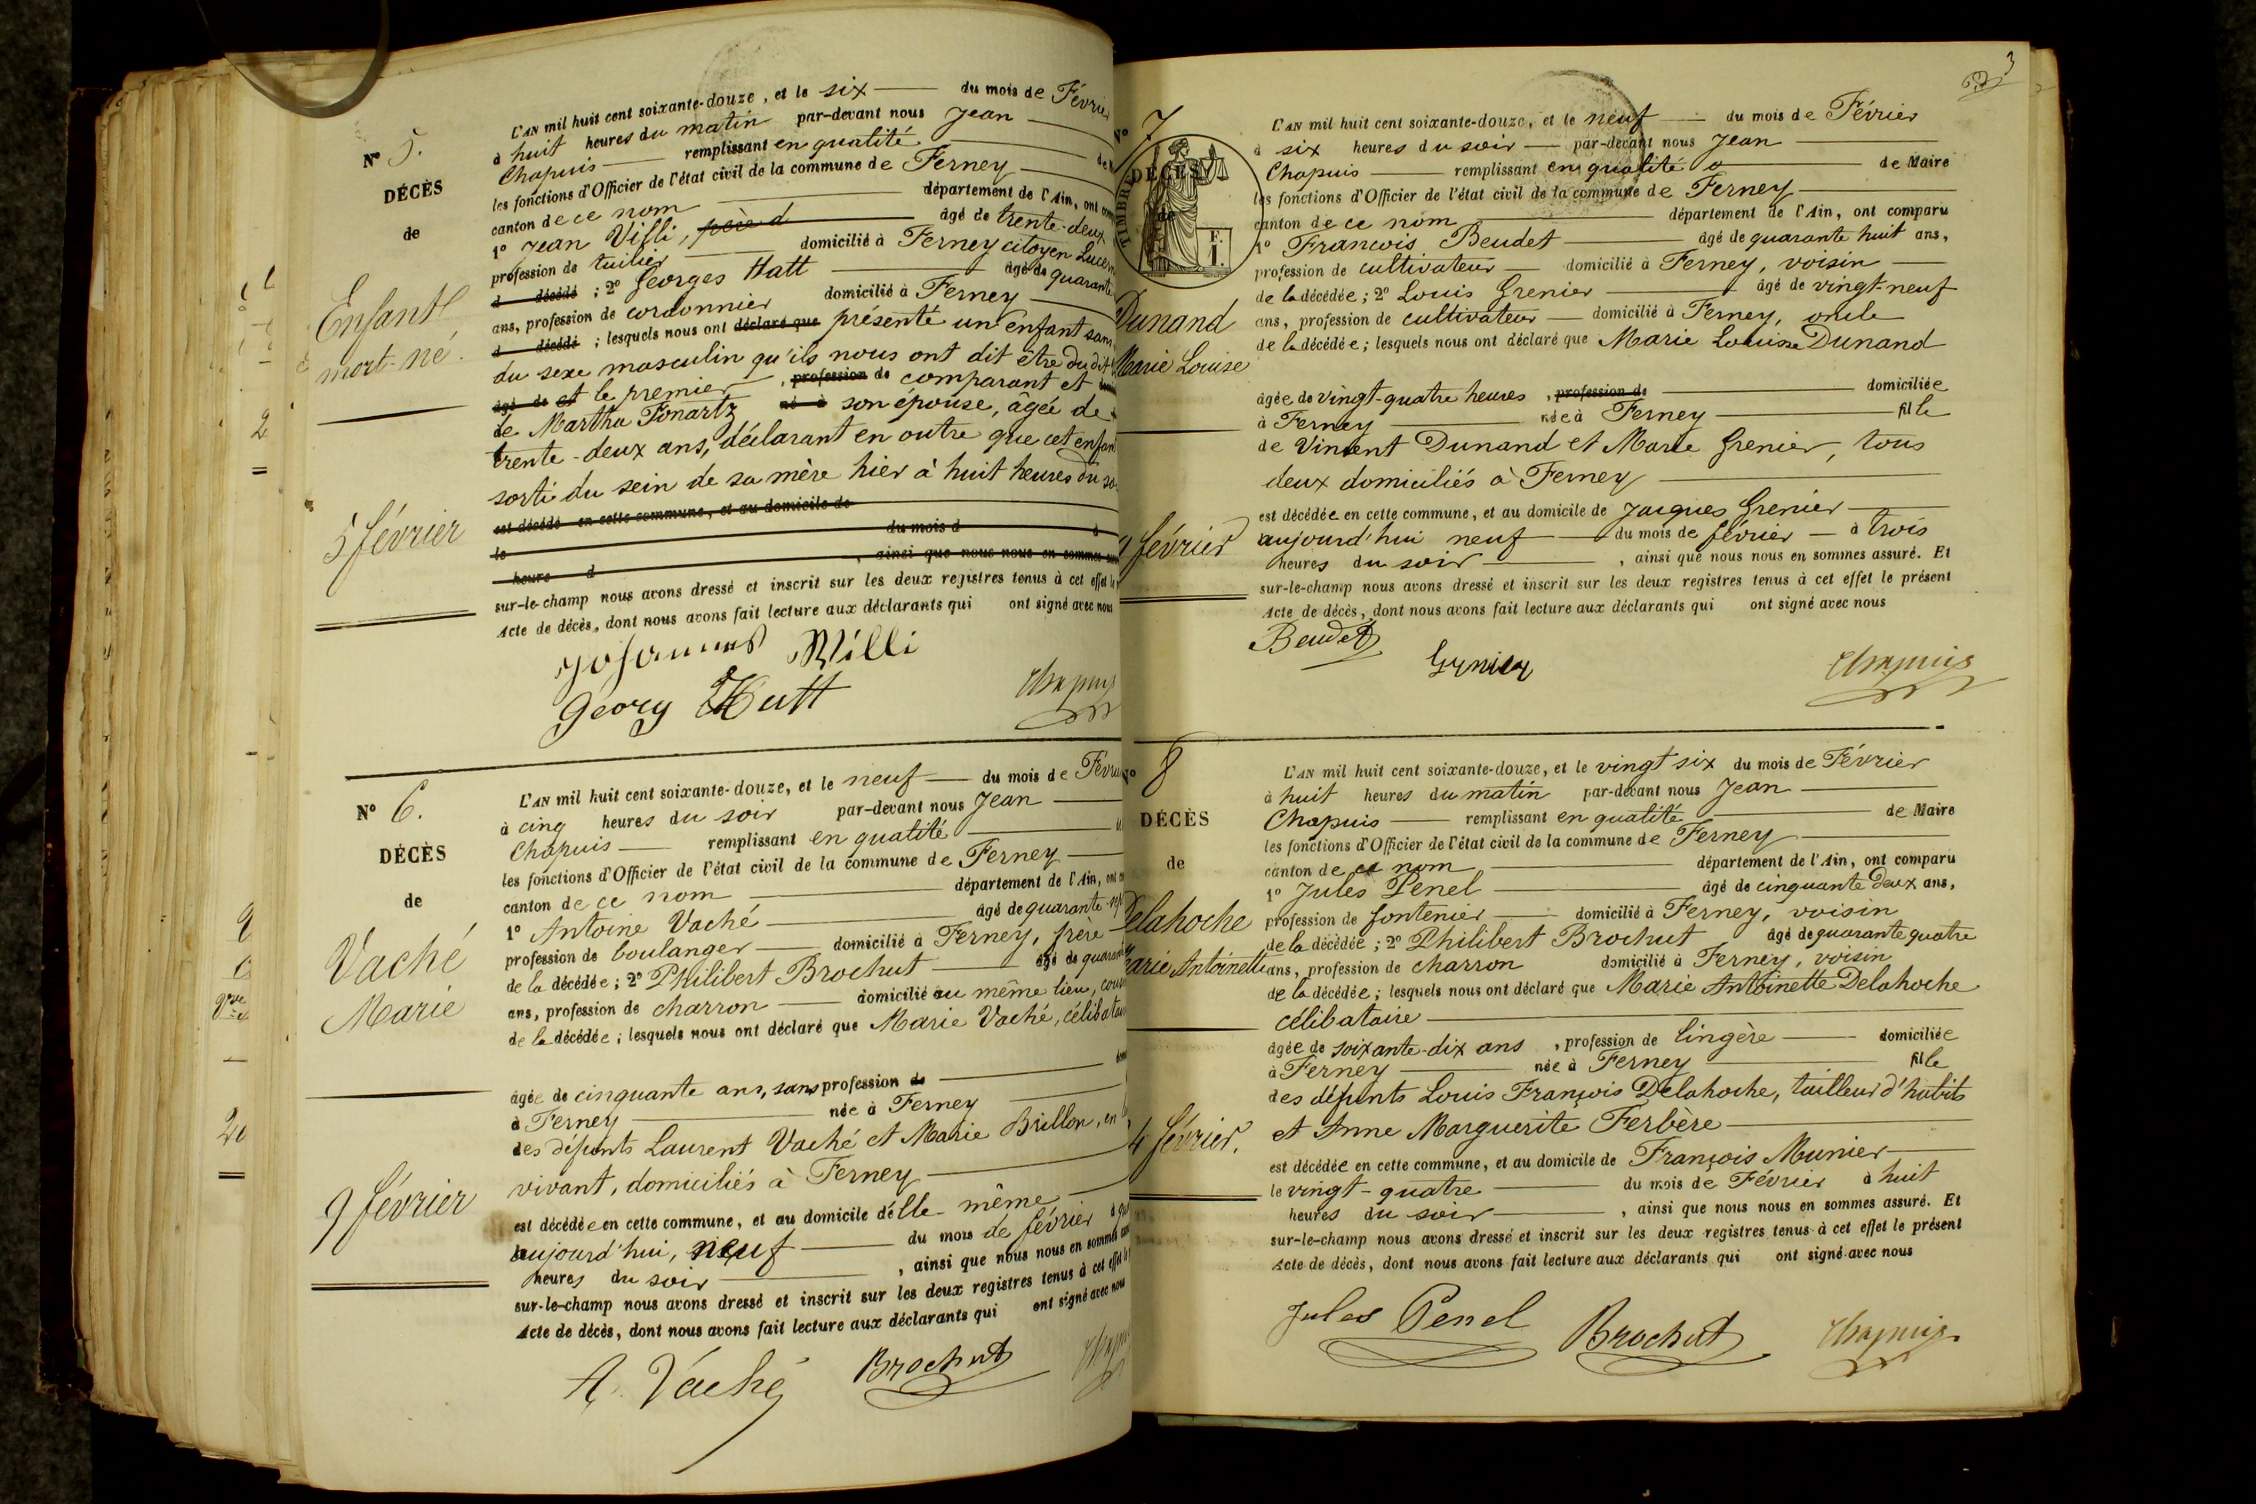 N° 5.
DÉCÈS
de
Enfant
mort-né.
5 février
L'AN mil huit cent soixante-douze, et le six du mois de Février
à huit heures du matin par-devant nous Jean
Chapuis remplissant en qualité de
les fonctions d'Officier de l'état civil de la commune de Ferney
canton de ce nom département de l'Ain, ont
1° Jean Villi, père d âgé de trente-deux
profession de tuilier domicilié à Ferney citoyen
d décédé ; 2° Georges Hatt âgé de quarante
ans, profession de cordonnier domicilié à Ferney
d décédé ; lesquels nous ont déclaré que présenté un enfant sans
du sexe masculin qu'ils nous ont dit être du dit
âgé de et le premier, profession de comparant et
de Martha né à son épouse, âgée de
trente-deux ans, déclarant en outre que cet enfant
sorti du sein de sa mère hier à huit heures du
est décédé en cette commune, et au domicile de
le du mois d à
heure d , ainsi que nous nous en sommes
sur-le-champ nous avons dressé et inscrit sur les deux registres tenus à cet effet le
Acte de décès, dont nous avons fait lecture aux déclarants qui ont signé avec nous
Johannes Willi
Georg Hutt
Chapuis
N° 6.
DÉCÈS
de
Vaché
Marie
9 février
L'AN mil huit cent soixante-douze, et le neuf du mois de
à cinq heures du soir par-devant nous Jean
Chapuis remplissant en qualité
les fonctions d'Officier de l'état civil de la commune de Ferney
canton de ce nom département de l'Ain, ont
1° Antoine Vaché âgé de quarante-
profession de boulanger domicilié à Ferney, frère
de la décédée ; 2° Philibert Brochut âgé de
ans, profession de charron domicilié au même lieu,
de la décédée ; lesquels nous ont déclaré que Marie Vaché,
âgée de cinquante ans, sans profession de
à Ferney née à Ferney
des défunts Laurent Vaché et Marie Brillon, en
vivant, domiciliés à Ferney
est décédée en cette commune, et au domicile d'elle-même
aujourd'hui, neuf du mois de février à
heures du soir , ainsi que nous nous en sommes
sur-le-champ nous avons dressé et inscrit sur les deux registres tenus à cet effet le
Acte de décès, dont nous avons fait lecture aux déclarants qui ont signé avec nous
A. Vaché Brochut
3
N° 7
DÉCÈS
de
TIMBRE
Dunand
Marie Louise
9 février
L'AN mil huit cent soixante-douze, et le neuf du mois de Février
à six heures du soir par-devant nous Jean
Chapuis remplissant en qualité de Maire
les fonctions d'Officier de l'état civil de la commune de Ferney
canton de ce nom département de l'Ain, ont comparu
1° François Beudet âgé de quarante huit ans,
profession de cultivateur domicilié à Ferney, voisin
de la décédée ; 2° Louis Grenier âgé de vingt-neuf
ans, profession de cultivateur domicilié à Ferney, oncle
de la décédée ; lesquels nous ont déclaré que Marie Louise Dunand
âgée de vingt-quatre heures, profession de domiciliée
à Ferney née à Ferney fille
de Vincent Dunand et Marie Grenier, tous
deux domiciliés à Ferney
est décédée en cette commune, et au domicile de Jacques Grenier
aujourd'hui neuf du mois de février à trois
heures du soir , ainsi que nous nous en sommes assuré. Et
sur-le-champ nous avons dressé et inscrit sur les deux registres tenus à cet effet le présent
Acte de décès, dont nous avons fait lecture aux déclarants qui ont signé avec nous
Beudet
Grenier
Chapuis
N° 8
DÉCÈS
de
Delahoche
Marie Antoinette
février.
L'AN mil huit cent soixante-douze, et le vingt six du mois de Février
à huit heures du matin par-devant nous Jean
Chapuis remplissant en qualité de Maire
les fonctions d'Officier de l'état civil de la commune de Ferney
canton de ce nom département de l'Ain, ont comparu
1° Jules Penel âgé de cinquante deux ans,
profession de fontenier domicilié à Ferney, voisin
de la décédée ; 2° Philibert Brochut âgé de quarante quatre
ans, profession de charron domicilié à Ferney, voisin
de la décédée ; lesquels nous ont déclaré que Marie Antoinette Delahoche
célibataire
âgée de soixante-dix ans, profession de lingère domiciliée
à Ferney née à Ferney fille
des défunts Louis François Delahoche, tailleur d'habits
et Anne Marguerite Ferbère
est décédée en cette commune, et au domicile de François Munier
le vingt-quatre du mois de Février à huit
heures du soir , ainsi que nous nous en sommes assuré. Et
sur-le-champ nous avons dressé et inscrit sur les deux registres tenus à cet effet le présent
Acte de décès, dont nous avons fait lecture aux déclarants qui ont signé avec nous
Jules Penel Brochut Chapuis